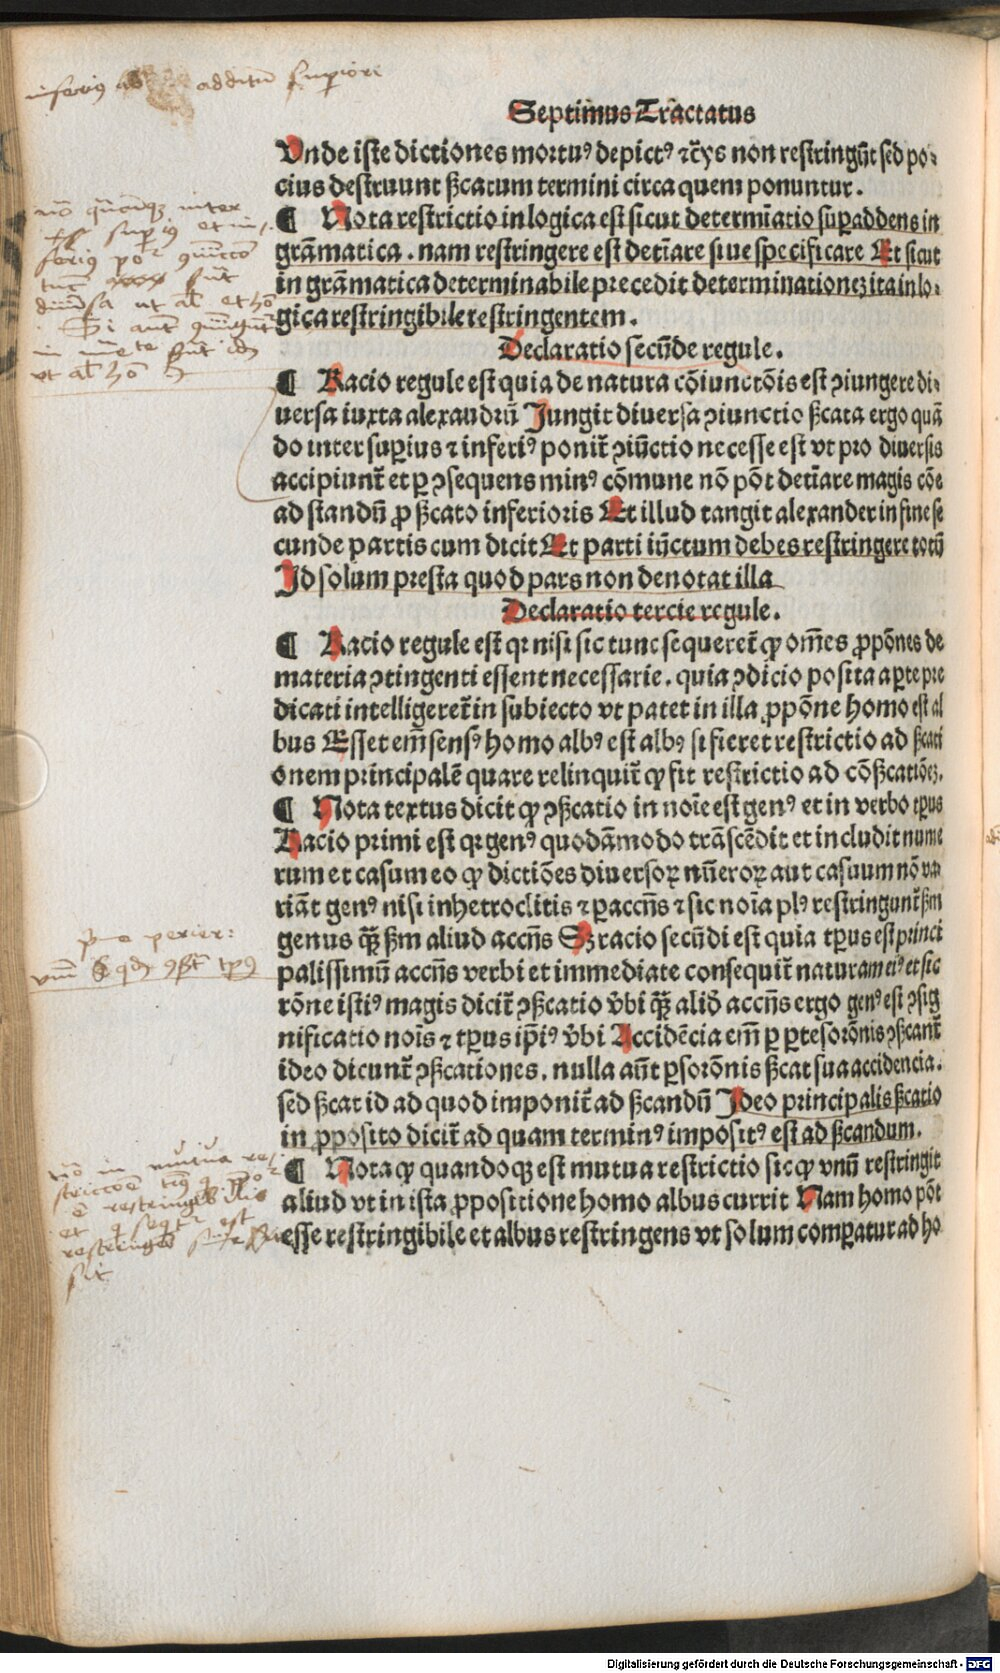 inferius ad additum superiori
Septimus Tractatus
Vnde iste dictiones mortuꝰ depictꝰ ⁊c̄ꝭ non restringūt sed po⸗
cius destruunt ßcatum termini circa quem ponuntur.
¶ Nota restrictio in logica est sicut determīatio suꝑaddens in
grāmatica. nam restringere est detīare siue specificare Et sicut
in grāmatica determinabile precedit determinationeꝫ ita in lo⸗
gica restringibile restringentem.
Declaratio secūde regule.
¶ Racio regule est quia de natura cōiunctōis est ꝯiungere di⸗
uersa iuxta alexandrū Jungit diuersa ꝯiunctio ßcata ergo quā
do inter suꝑius ⁊ inferiꝰ ponit̄ ꝯiūctio necesse est vt pro diuersis
accipiunt̄ et ꝑ ꝯsequens minꝰ cōmune nō pōt detīare magis cōe
ad standū ꝓ ßcato inferioris Et illud tangit alexander in fine se
cunde partis cum dicit Et parti iūctum debes restringere totū
Id solum presta quod pars non denotat illa
Declaratio tercie regule.
¶ Racio regule est qꝛ nisi sic tunc sequeret̄ ꝙ om̄es ꝓpōnes de
materia ꝯtingenti essent necessarie. quia ꝯdicio posita a ꝑte pre
dicati intelligeret̄ in subiecto vt patet in illa ꝓpōne homo est al
bus Esset em̄ sensꝰ homo albꝰ est albꝰ si fieret restrictio ad ßcati
onem principalē quare relinquit̄ ꝙ fit restrictio ad cōßcatiōeꝫ.
¶ Nota textus dicit ꝙ ꝯßcatio in noīe est genꝰ et in verbo tꝑus
Racio primi est qꝛ genꝰ quodāmodo trāscēdit et includit nume
rum et casum eo ꝙ dictiōes diuersoꝝ nūeroꝝ aut casuum nō va
riāt genꝰ nisi in hetroclitis ⁊ ꝑ accn̄s ⁊ sic noīa plꝰ restringunt̄ ßm
genus qꝫ ßm aliud accn̄s Sꝫ racio secūdi est quia tꝑus est princi
palissimū accn̄s verbi et immediate consequit̄ naturam eiꝰ et sic
rōne istiꝰ magis dicit̄ ꝯßcatio v̄bi qꝫ aliud̄ accn̄s ergo genꝰ est ꝯsig
nificatio noīs ⁊ tꝑus ip̄iꝰ v̄bi Accidēcia em̄ ꝑ ꝑtes orōnis ꝯßcant̄
ideo dicunt̄ ꝯßcationes. nulla aūt ꝑs orōnis ßcat sua accidencia.
sed ßcat id ad quod imponit̄ ad ßcandū Ideo principalis ßcatio
in ꝓposito dicit̄ ad quam terminꝰ impositꝰ est ad ßcandum.
¶ Nota ꝙ quandoqꝫ est mutua restrictio sic ꝙ vnū restringit
aliud vt in ista ꝓpositione homo albus currit Nam homo pōt
esse restringibile et albus restringens vt solum comꝑatur ad ho
Digitalisierung gefördert durch die Deutsche Forschungsgemeinschaft - DFG